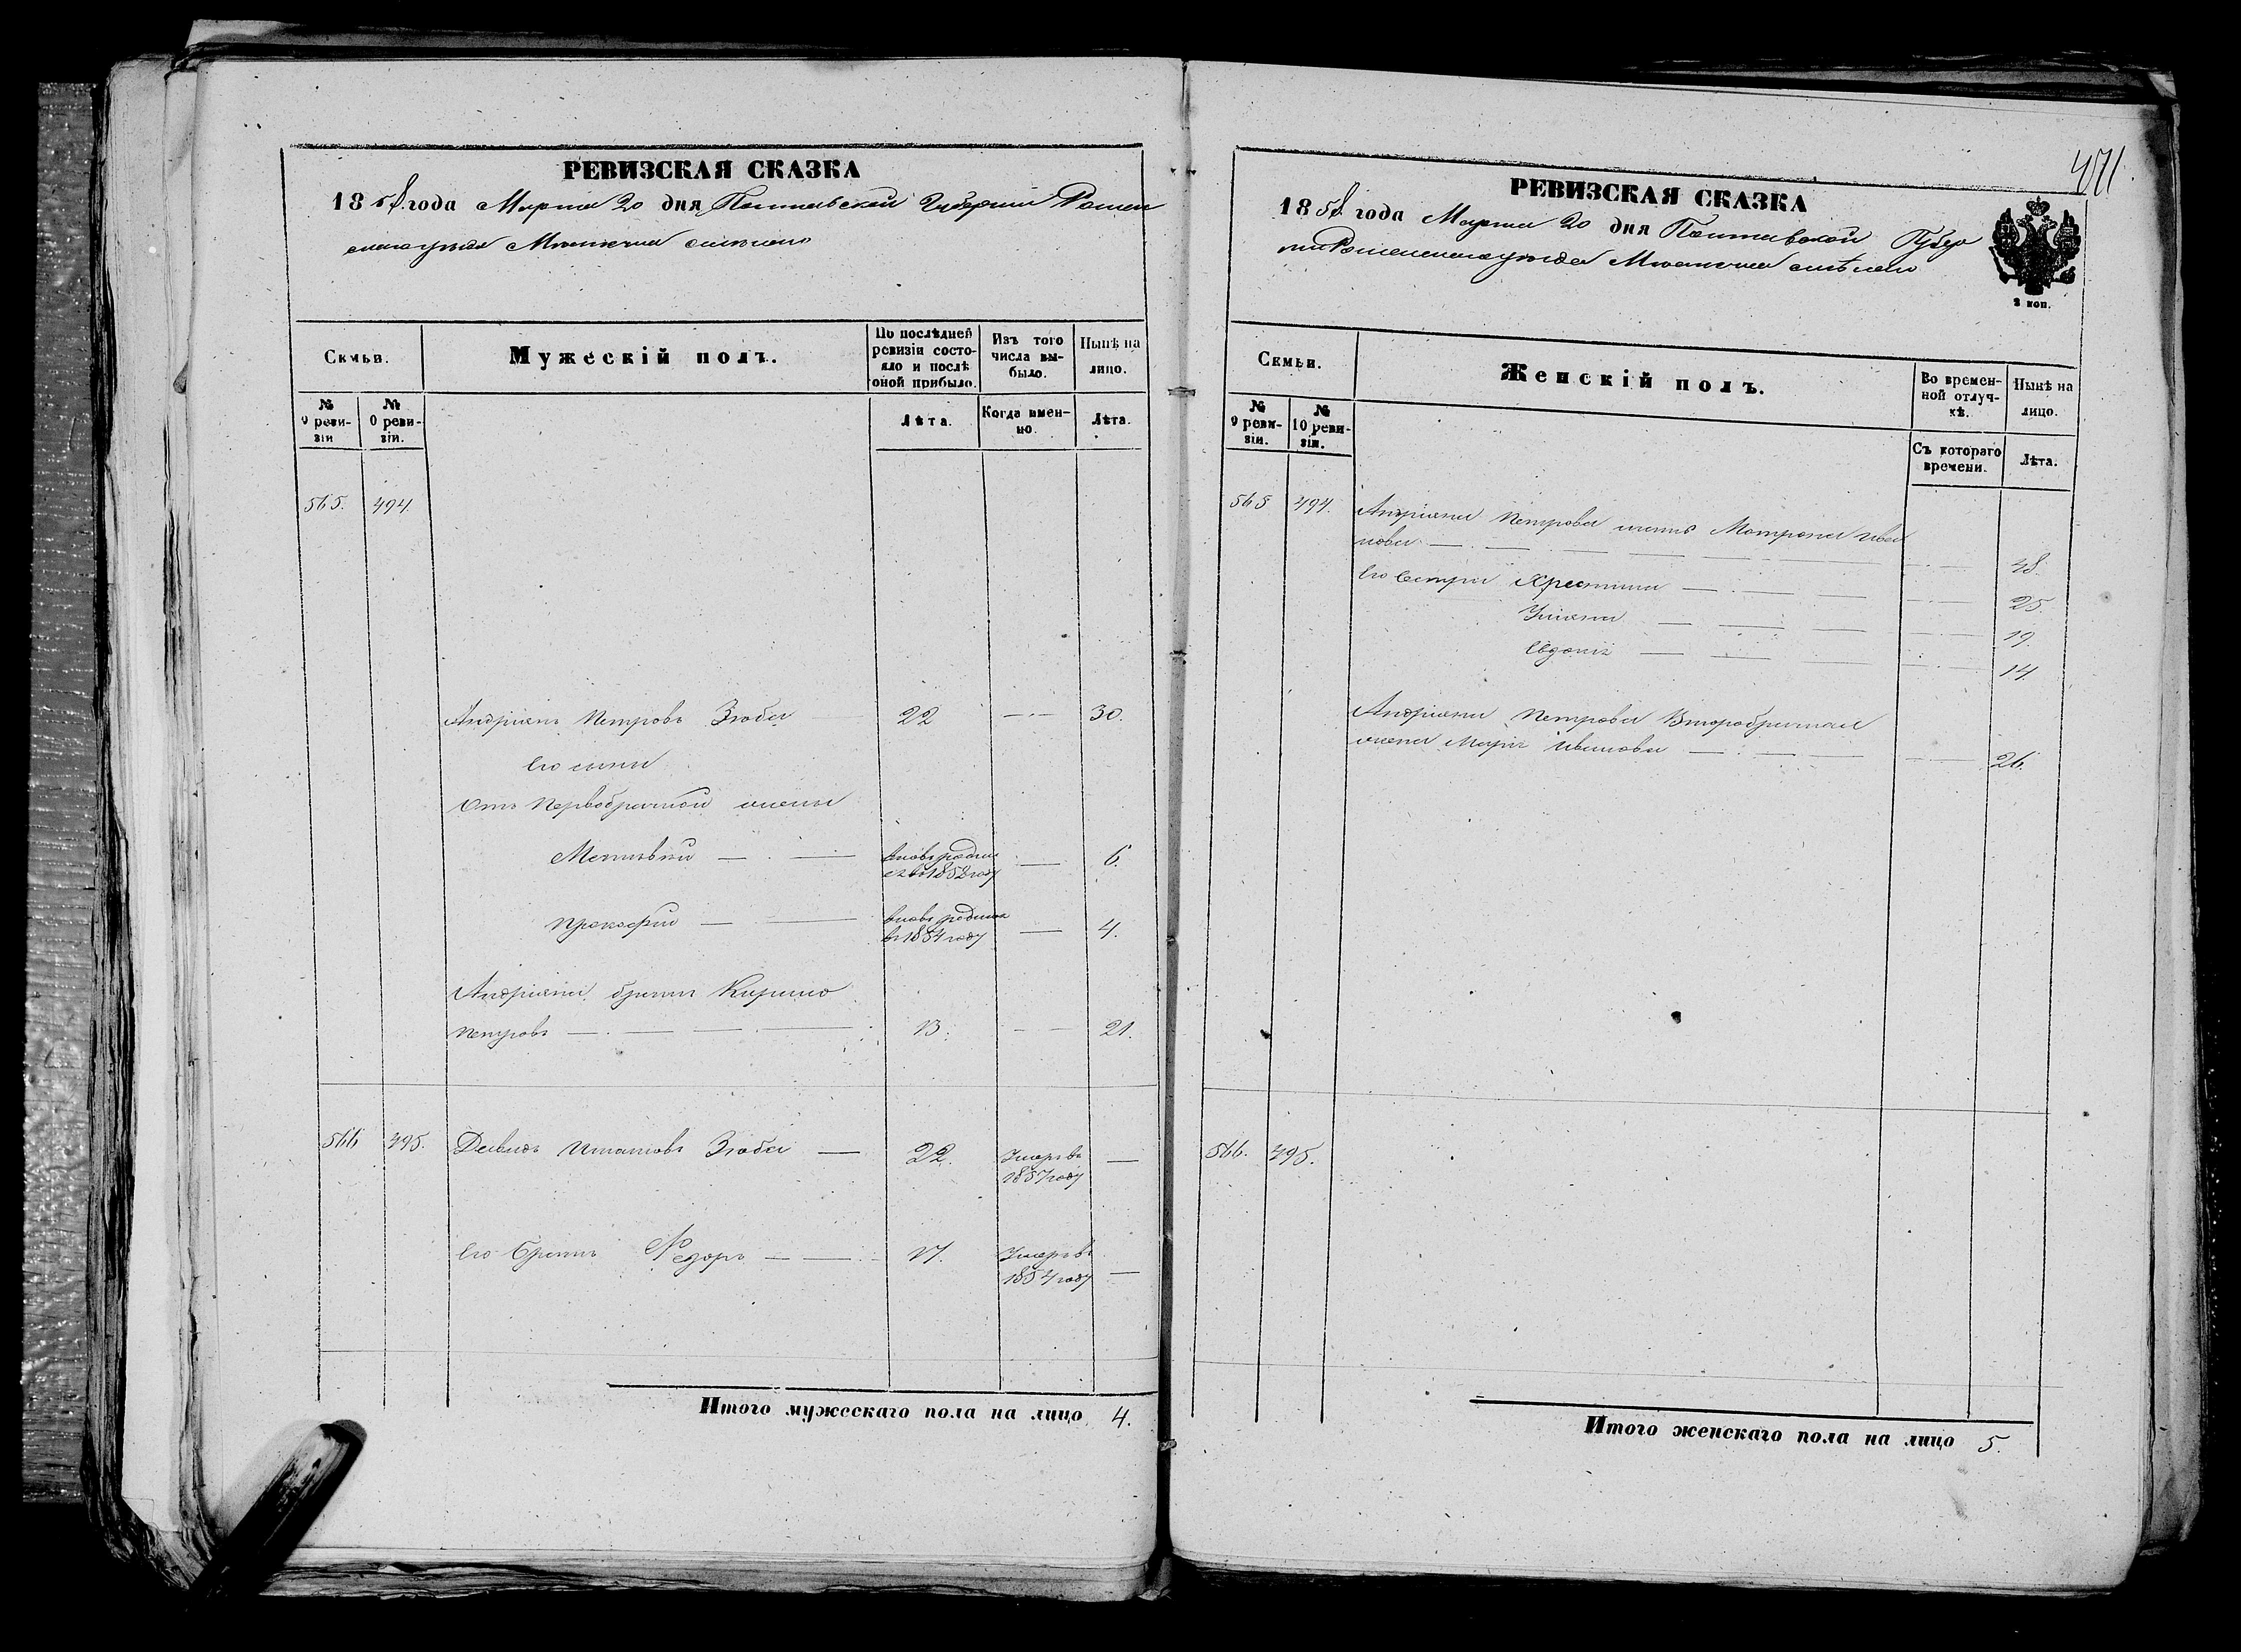 РЕВИЗСКАЯ СКАЗКА
1858 года Марта 20 дня Полтавской Губернии Ромен
скаго уезда Местечка Смелого
Семьи.
Мужескій полъ.
По послѣдней ревизіи состояло и послѣ оной прибыло.
Изъ того числа выбыло.
Нынѣ на лицо.
№ 9 ревизіи
№ 0 ревизіи.
Лѣта.
Когда именно.
Лѣта.
565. 494.
Андріянъ Петровъ Зюба 22 30.
Его сыны
Отъ Первобрачной жены
Матвѣй вновь родился въ 1852 году 6.
Прокофій вновь родился въ 1854 году 4.
Андріяна братъ Кирило
Петровъ 13. 21.
566 495. Давидъ Зюба 22. Умеръ въ 1857 году
Его Братъ Федоръ 17. Умеръ въ 1854 году
Итого мужескаго пола на лицо 4.
471.
РЕВИЗСКАЯ СКАЗКА
1858 года Марта 20 дня Полтавской Губер
ніи Роменскаго уезда Местечка Смѣлого
2 коп.
Семьи.
Женскій полъ.
Во временной отлучкѣ.
Нынѣ на лицо.
№ 9 ревизіи.
№ 10 ревизіи.
Съ котораго времени.
Лѣта.
565 494. Андріяна Петрова мать Мотрона Ива
нова 48.
Его Сестры Христина 25.
Уліяна 19.
Евдокія 14.
Андріяна Петрова Второбрачная
жена Марія Иванова 26.
566. 495.
Итого женскаго пола на лицо 5.